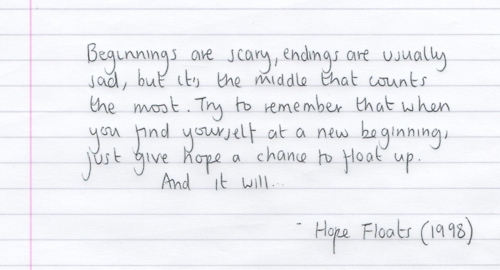 Beginnings are scary, endings are usually
sad, but it's the middle that counts
the most. Try to remember that when
you find yourself at a new beginning,
just give hope a chance to float up.
And it will...
- Hope Floats (1998)